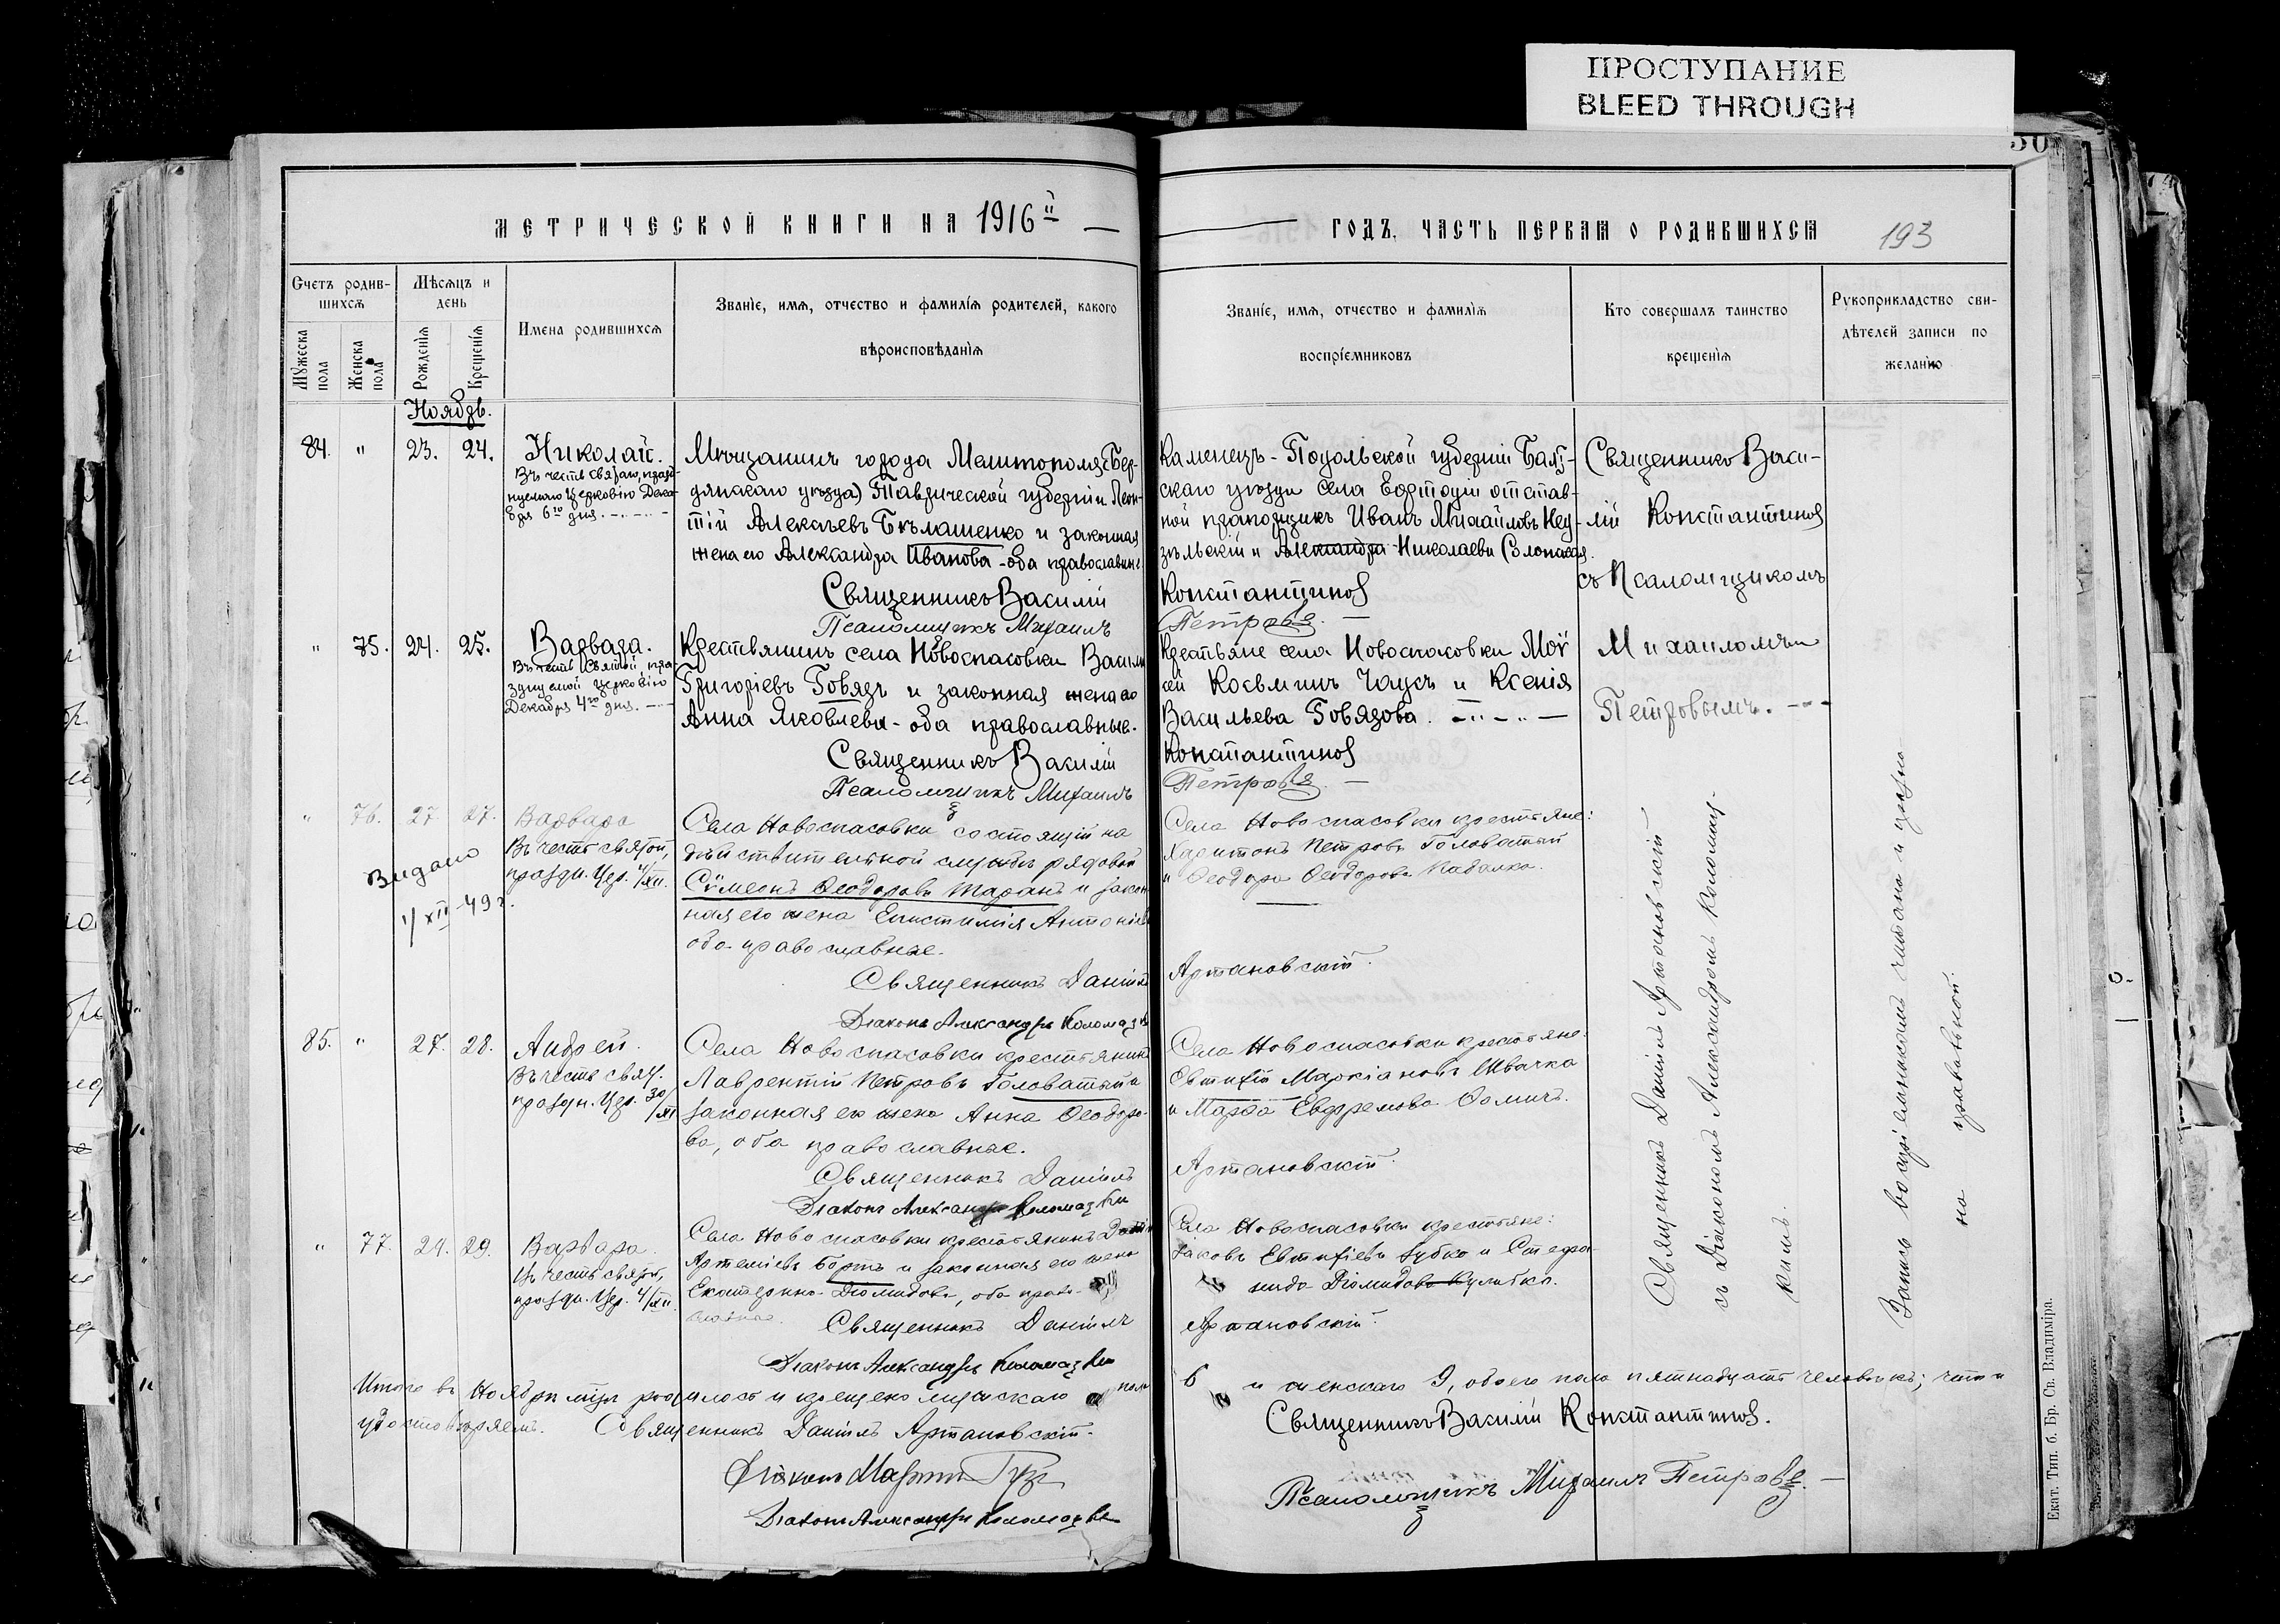 ПРОСТУПАНИЕ
BLEED THROUGH
МЕТРИЧЕСКОЙ КНИГИ НА 1916й
ГОДЪ, ЧАСТЬ ПЕРВАЯ О РОДИВШИХСЯ 193
Счетъ родив-
шихся
Мужеска пола
Женска пола
Мѣсяцъ и
день
Рожденія
Крещенія
Имена родившихся
Званіе, имя, отчество и фамилія родителей, какого
вѣроисповѣданія
Званіе, имя, отчество и фамилія
воспріемниковъ
Кто совершалъ таинство
крещенія
Рукоприкладство сви-
дѣтелей записи по
желанію
Ноябрь.
84. " 23. 24.
Николай.
Въ честь святаго, празд-
нуемаго Церковію Дека-
бря 6го дня.
Мѣщанинъ города Мелитополя (Бер-
дянскаго уѣзда) Таврической губерніи Леон-
тій Алексѣевъ Бѣлашенко и законная
жена его Александра Иванова - оба православные
Священникъ Василій
Псаломщикъ Михаилъ
Каменецъ-Подольской губерніи Балт-
скаго уѣзда села отстав-
ной прапорщикъ Иванъ Михайловъ
и Александра Николаева
Константинов
Петровъ.
Священникъ Васи-
лій Константинов
съ Псаломщикомъ
Михаиломъ
Петровымъ.
" 75. 24. 25.
Варвара.
Въ честь Святой пра
зднуемой Церковію
Декабря 4го дня.
Крестьянинъ села Новоспасовки Василій
Григоріевъ Говязъ и законная жена его
Анна Яковлева - оба православные.
Священникъ Василій
Псаломщикъ Михаилъ
Крестьяне села Новоспасовки Мой
сей Косьминъ Чаусъ и Ксенія
Васильева Говязова.
Константинов
Петровъ.
" 76. 27. 27.
Варвара
Въ честь святой,
праздн. Цер. 4/XII.
Видано
1/XII-49 г.
Села Новоспасовки состоящій на
дѣйствительной службѣ рядовой
Сѵмеонъ Ѳеодоровъ Таранъ и закон
ная его жена Епистимія Антоніева
оба православные.
Священникъ Даніилъ
Діаконъ Александръ
Села Новоспасовки крестьяне:
Харитонъ Петровъ Головатый
и Ѳеодора Ѳеодорова
Артановскій.
85. " 27. 28.
Андрей.
Въ честь свят.
праздн. Цер. 30/XI
Села Новоспасовки крестьянинъ
Лаврентій Петровъ Головатый и
законная его жена Анна Ѳеодоро-
ва, оба православные.
Священникъ Даніилъ
Діаконъ Александръ
Села Новоспасовки крестьяне:
Евтихій Маркіановъ Швачка
и Марѳа Евфремова
Артановскій.
" 77. 24. 29.
Варвара.
Въ честь святой,
праздн. Цер. 4/XII.
Села Новоспасовки крестьянинъ
Артеміевъ Бортъ и законная его жена
Екатерина Діомидова, оба право-
славные.
Священникъ Даніилъ
Діаконъ Александръ
Села Новоспасовки крестьяне:
Іаковъ Евтихіевъ Зубко и Стефа-
нида Діомидова Кулибка.
Артановскій.
Священникъ Даніилъ Артановскій
съ Діакономъ Александромъ Коломац-
кимъ.
на правильной.
Итого въ Ноябрѣ мѣс. родилось и крещено мужскаго пола
6 и женскаго 9, обоего пола пятнадцать человѣкъ; что и
удостовѣряемъ. Священникъ Даніилъ Артановскій.
Діаконъ
Діаконъ Александръ
Священникъ Василій Константинов.
Псаломщикъ Михаилъ Петровъ.
Екат. Тип. б. Бр. Св. Владиміра.